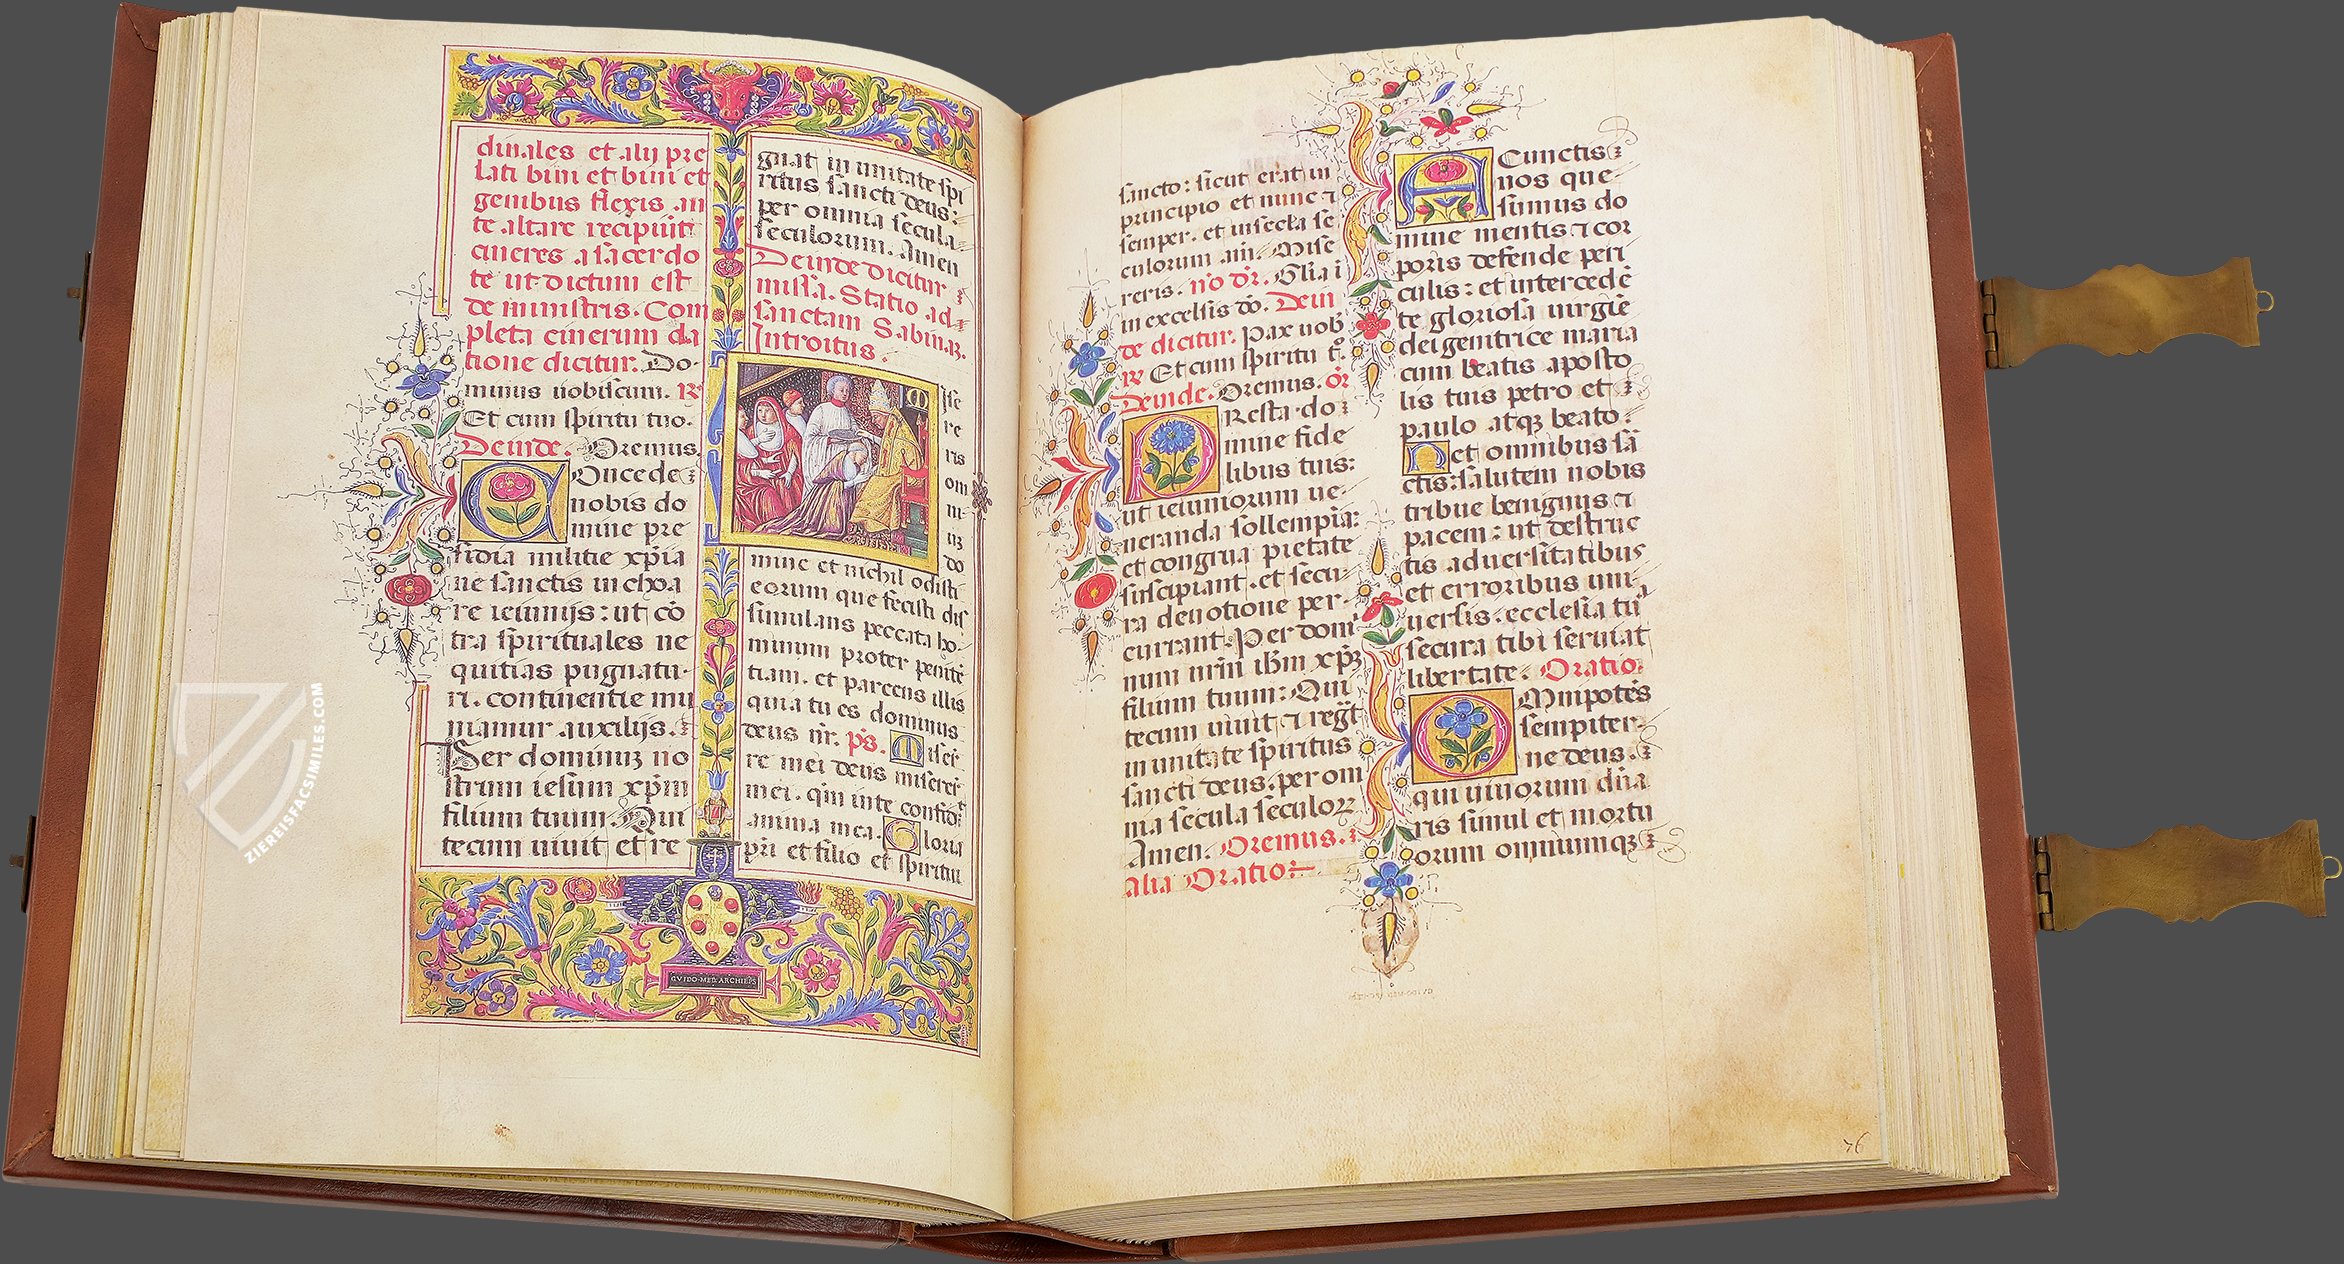 dinales et alij pre
lati bini et bini et
genibus flexis an
te altare recipiūt
cineres a sacerdo
te ut dictum est
de ministris. Com
pleta cinerum da
tione dicitur. Do-
minus uobiscum. R
Et cum spiritu tuo.
Deinde. Oremus.
COncede
nobis do
mine pre
sidia militie xp̄ia
ne sanctis inchoa
re ieiunijs: ut cō
tra spirituales ne
quitias pugnatu-
ri. continentie mu
niamur auxilijs.
Per dominuz no
strum iesum xp̄m
filium tuum. Qui
tecum uiuit et re
gnat in unitate spi
ritus sancti deus:
per omnia secula
seculorum. Amen
Deinde dicitur
missa. Statio ad
sanctam Sabinaz.
Introitus.
Mise
re
ris
om
ni-
uz
do
mine et nichil odisti
eorum que fecisti dis
simulans peccata ho-
minum propter penitē
tiam. et parcens illis
quia tu es dominus
deus nr̄. p̄s. Miser
re mei deus miserer
mei. qm̄ in te confid
anima mea. Gloria
pr̄i et filio et spiritu
GVIDO·MED·ARCHIEPS
sancto: sicut erat in
principio et nunc ⁊
semper. et in secla se
culorum am̄. Mise
reris. nō dr̄. Glia i
in excelsis dō. Dein
de dicitur. Pax uob
R Et cum spiritu t̄.
Deinde. Oremus. ōr
PResta do
mine fide
libus tuis:
ut ieiuniorum ue-
neranda sollempia:
et congrua pietate
suscipiant. et secu-
ra deuotione per-
currant. Per domi
num nr̄m ihm xp̄z
filium tuum: Qui
tecum uiuit ⁊ regt
in unitate spiritus
sancti deus. per om
nia secula seculorz
Amen. Oremus.
alia Oratio
A Cunctis
nos que-
sumus do
mine mentis ⁊ cor
poris defende peri
culis: et intercedē
te gloriosa uirgīe
dei genitrice maria
cum beatis aposto
lis tuis petro et
paulo atqz beato.
n et omnibus sā
ctis: salutem nobis
tribue benignus ⁊
pacem: ut destruc
tis aduersitatibus
et erroribus uni-
uersis. ecclesia tua
secura tibi seruiat
libertate. Oratio
OMnipotēs
sempiter-
ne deus.
qui uiuorum dn̄a
ris simul et mortu
orum omniumqz
76
ZIEREISFACSIMILES.COM